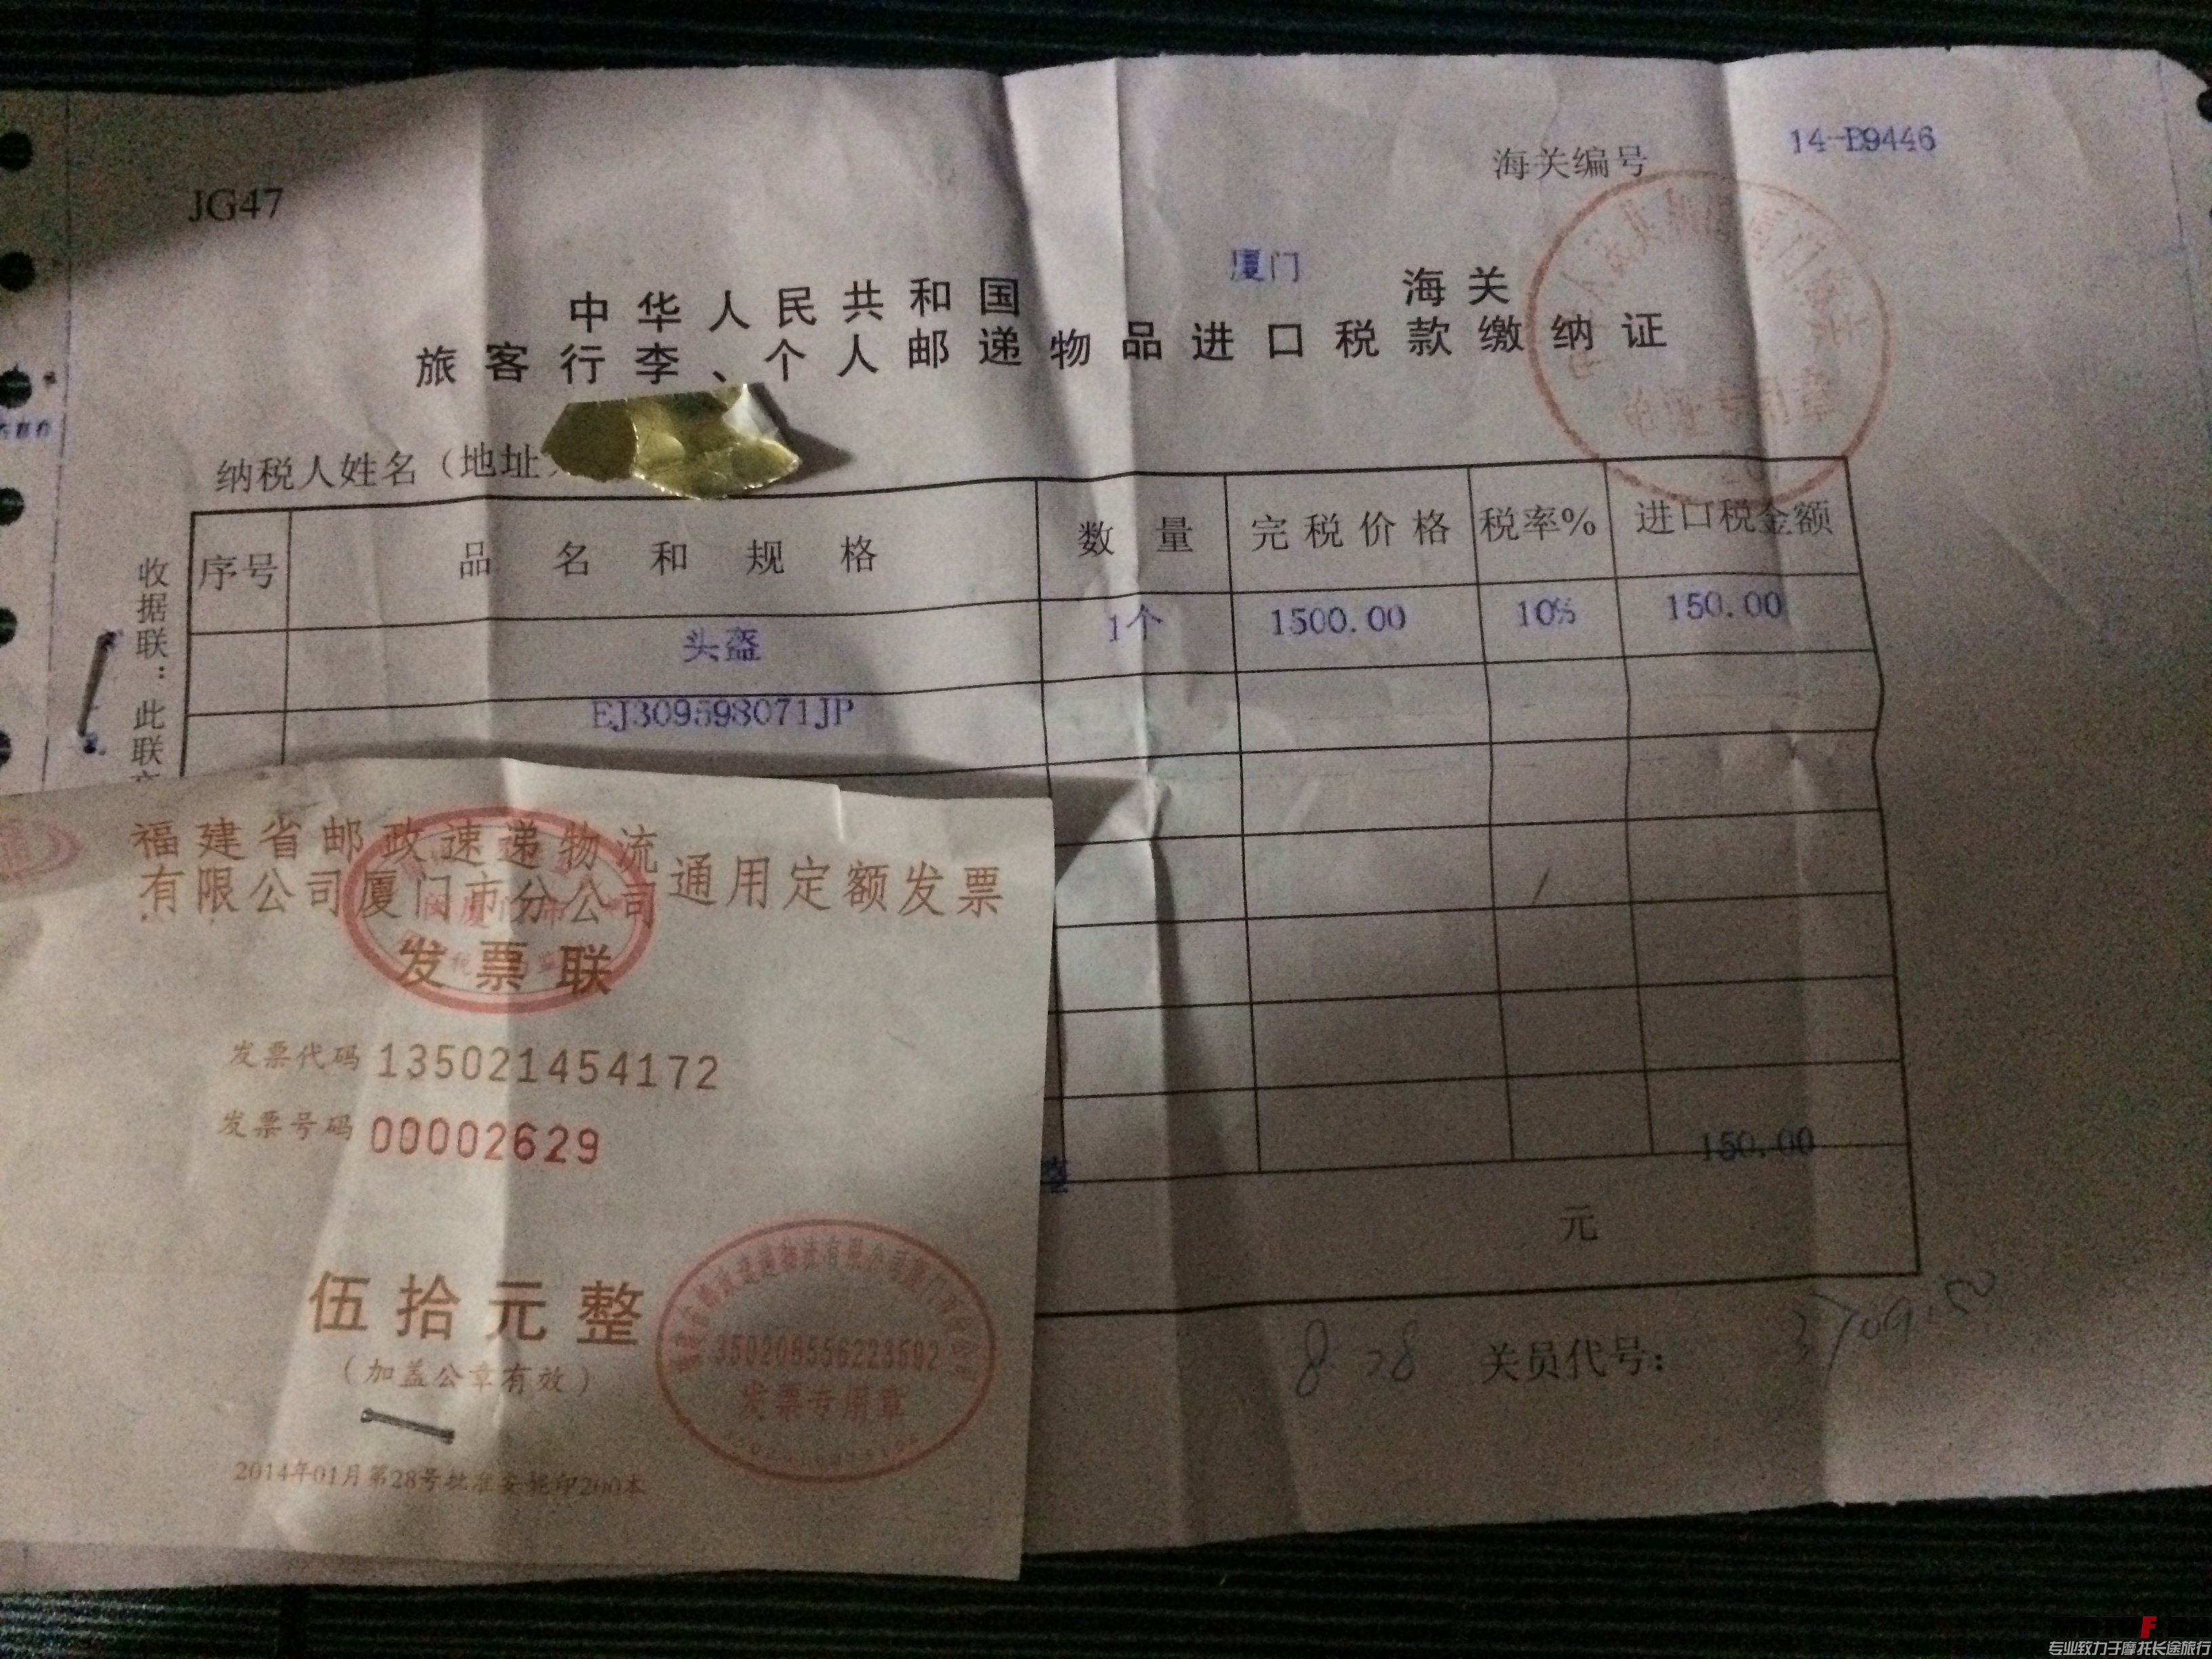 海关编号
14-E9446
JG47
中华人民共和国 厦门 海关
旅客行李、个人邮递物品进口税款缴纳证
纳税人姓名（地址
序号 品名和规格 数量 完税价格 税率% 进口税金额
头盔 1个 1500.00 10% 150.00
EJ309598071JP
收据联：此联
150.00
元
8 28 关员代号：
福建省邮政速递物流
有限公司厦门市分公司
通用定额发票
发票联
发票代码 135021454172
发票号码 00002629
伍拾元整
（加盖公章有效）
350206556223592
发票专用章
2014年01月第28号批准
印200本
专业致力于摩托长途旅行